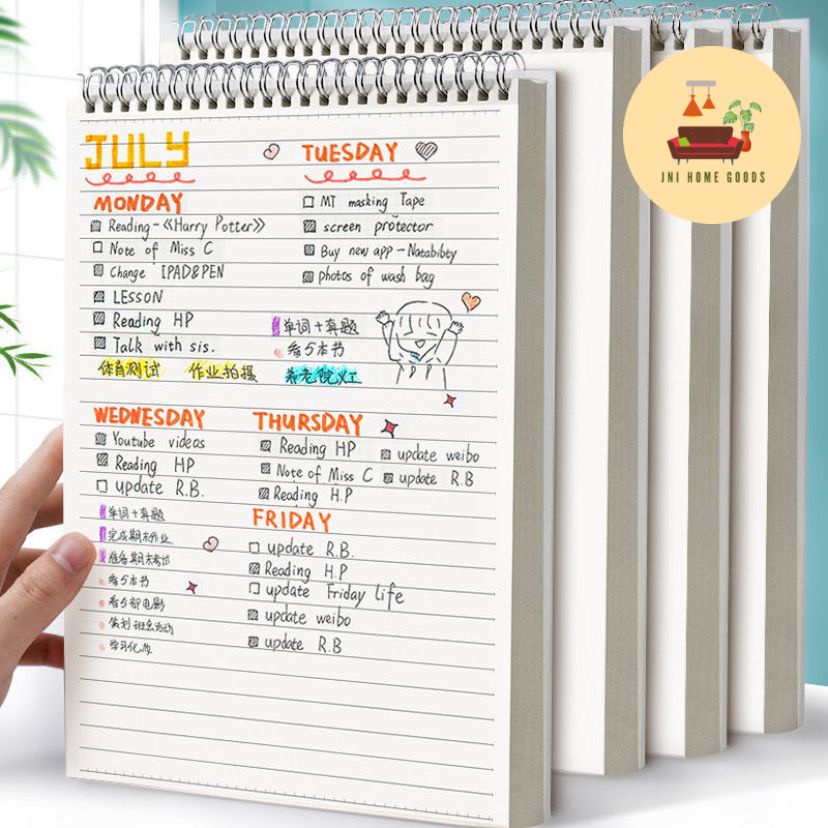 JULY
TUESDAY
MONDAY
MT masking Tape
Reading-《Harry Potter》
screen protector
Note of Miss C
Buy new app-Natabibty
Change IPAD&PEN
photos of wash bag
LESSON
Reading HP
单词+真题
Talk with sis.
看5本书
体育测试 作业拍摄 养老院义工
WEDNESDAY THURSDAY
Youtube videos
Reading HP
update R.B.
Reading HP update weibo
Note of Miss C update R.B
Reading H.P
单词+真题
完成期末作业
准备期末考试
看5本书
看5部电影
策划班会活动
学习化妆
FRIDAY
update R.B.
Reading H.P
update Friday life
update weibo
update R.B
JNI HOME GOODS